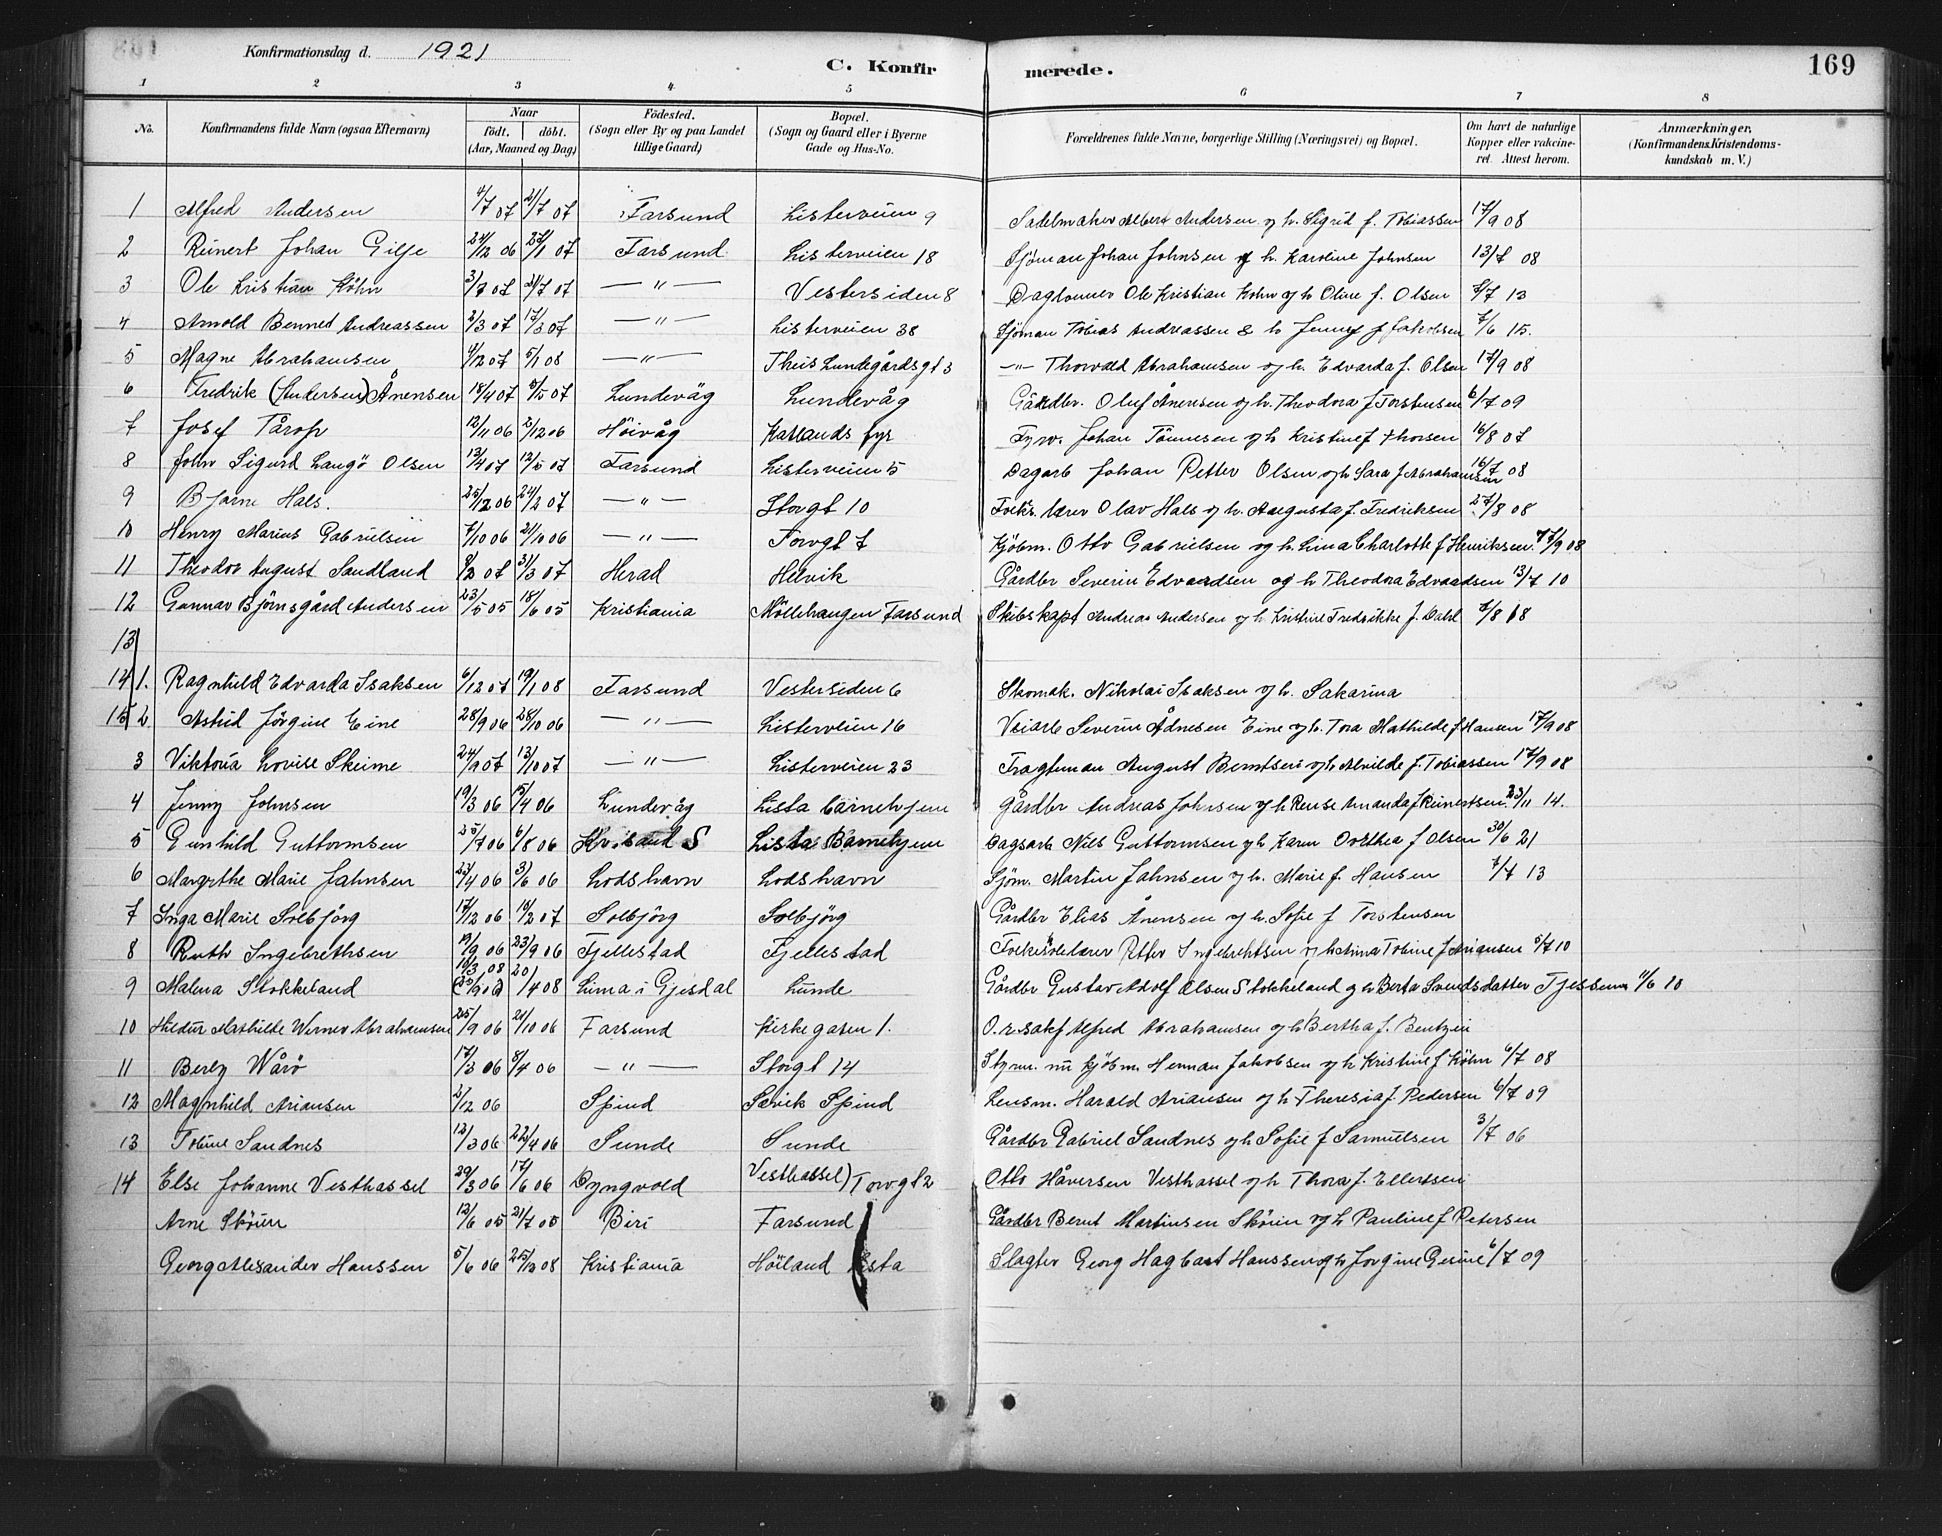 Konfirmationsdag d. 1921
C. Konfirmerede.
169
1 2 3 4 5 6 7 8
No. Konfirmandens fulde Navn (ogsaa Efternavn) Naar födt. döbt. (Aar, Maaned og Dag) Födested. (Sogn eller By og paa Landet tillige Gaard) Bopæl. (Sogn og Gaard eller i Byerne Gade og Hus-No. Forældrenes fulde Navne, borgerlige Stilling (Næringsvei) og Bopæl. Om havt de naturlige Kopper eller vakcineret. Attest herom. Anmærkninger. (Konfirmandens Kristendomskundskab m. V.)
1 Alfred Andersen 4/7 07 21/7 07 Farsund Listerveien 9 Sadelmaker Albert Andersen og h. Sigrid f. Tobiassen 17/9 08
2 Reinert Johan Gilje 24/12 06 27/1 07 Farsund Listerveien 18 Sjöman Johan Johnsen og h. Karoline Johnsen 13/7 08
3 Ole Kristian Köhn 3/7 07 21/7 07 — " — Vestersiden 8 Daglönner Ole Kristian Kohn og h Oline f. Olsen 8/7 13
4 Arnold Bennet Andreassen 2/3 07 17/3 07 — " — Listerveien 38 Sjöman Tobias Andreassen & h Jenny f Jakobsen 7/6 15.
5 Magne Abrahamsen 4/12 07 5/1 08 — " — Theis Lundegårdsgt 3 — " — Thorvald Abrahamsen og h. Edvarda f. Olsen 17/9 08
6 Fredrik (Andersen) Ånensen 18/4 07 5/5 07 Lundevåg Lundevåg Gårdbr. Oluf Ånensen og h. Theodora f Torstensen 6/7 09
7 Josef Tårop 12/11 06 2/12 06 Höivåg Katlands fyr Fyrv. Johan Tönnesen og h Kristine f Thorsen 16/8 07
8 John Sigurd Langö Olsen 13/4 07 12/5 07 Farsund Listerveien 5 Dagarb Johan Petter Olsen og h Sara f Abrahamsen 16/7 08
9 Bjarne Hals. 25/12 06 24/2 07 — " — Storgt 10 Folks. lærer Olav Hals og h. Augusta f. Fredriksen 27/8 08
10 Henry Marius Gabrielsen 7/10 06 21/10 06 — " — Torvgt 7 Kjöbm. Otto Gabrielsen og h. Lina Charlotte f Henriksen 17/9 08
11 Theodor August Sandland 9/2 07 31/3 07 Herad Helvik Gårdbr Severin Edvardsen og h Theodora Edvardsen 13/7 10
12 Gunnar Björnsgård Andersen 23/5 05 18/6 05 Kristiania Möllehaugen Farsund Skibskapt Andreas Andersen og h Kristine Fredrikke f. Dahl 7/8 18
13
14 1. Ragnhild Edvarda Isaksen 6/12 07 19/1 08 Farsund Vestersiden 6 Skomak. Nikolai Isaksen og h. Sakarina
15 2. Astrid Jörgine Eine 28/9 06 28/10 06 — " — Listerveien 16 Veiarb Severin Ådnesen Eine og h. Tora Mathilde f Hansen 17/9 08
3 Viktoria Lovise Skeime 24/9 07 13/10 07 — " — Listerveien 23 Fragtman August Berntsen og h Alvilde f. Tobiassen 17/9 08
4 Jenny Johnsen 19/3 06 15/4 06 Lundevåg Lista barnehjem Gårdbr Andreas Johnsen og h Rense Amanda f Reinertsen 23/11 14.
5 Gunhild Guttormsen 25/7 06 6/8 06 Kristiand S Lista Barnehjem Dagsarb Nils Guttormsen og h Karen f Olsen 30/6 21
6 Margrethe Marie Jahnsen 22/4 06 3/6 06 Lodshavn Lodshavn Sjöm. Martin Jahnsen og h. Marie f. Hansen 7/7 13
7 Inga Marie Solbjörg 17/12 06 10/2 07 Solbjörg Solbjörg Gårdbr Elias Ånensen og h. Sofie f Torstensen
8 Ruth Ingebrethsen 19/9 06 23/9 06 Fjellestad Fjellestad Folkeskolelærer Petter Ingebrethsen og h Anna Tobine f Ariansen 5/7 10
9 Malena Stokkeland 10/3 08 20/4 08 Lima i Gjesdal Lunde Gårdbr Gustav Adolf Olsen Stokkeland og h Berta Svendsdatter Tjessem 11/6 10
10 Hildur Mathilde Werner Abrahamsen 25/9 06 21/10 06 Farsund Kirkegaten 1. O.r.sakf Alfred Abrahamsen og h Bertha f. Bentzen
11 Berly Wårö 17/3 06 8/4 06 — " — Storgt 14 Styrm. nu kjöbm. Herman Jakobsen og h Kristine f Köhn 6/7 08
12 Magnhild Ariansen 2/12 06 Spind Sævik Spind Lensm. Harald Ariansen og h Theresia f. Pedersen 6/7 09
13 Tobine Sandnes 12/3 06 22/4 06 Sunde Sunde Gårdbr Gabriel Sandnes og h Sofie f Samuelsen 3/7 06
14 Else Johanne Vesthassel 29/3 06 17/6 06 Lyngvold Vesthassel) Torvgt 2 Otto Håversen Vesthassel og h Thora f. Ellertsen
Arne Sköien 12/6 05 21/7 05 Biri Farsund Gårdbr Bernt Martinsen Sköien og h Pauline f Petersen
Georg Alexander Hanssen 5/6 06 25/12 08 Kristiania Höiland Lista Slagter Georg Hagbart Hanssen og h Jörgine Gurine 6/7 09